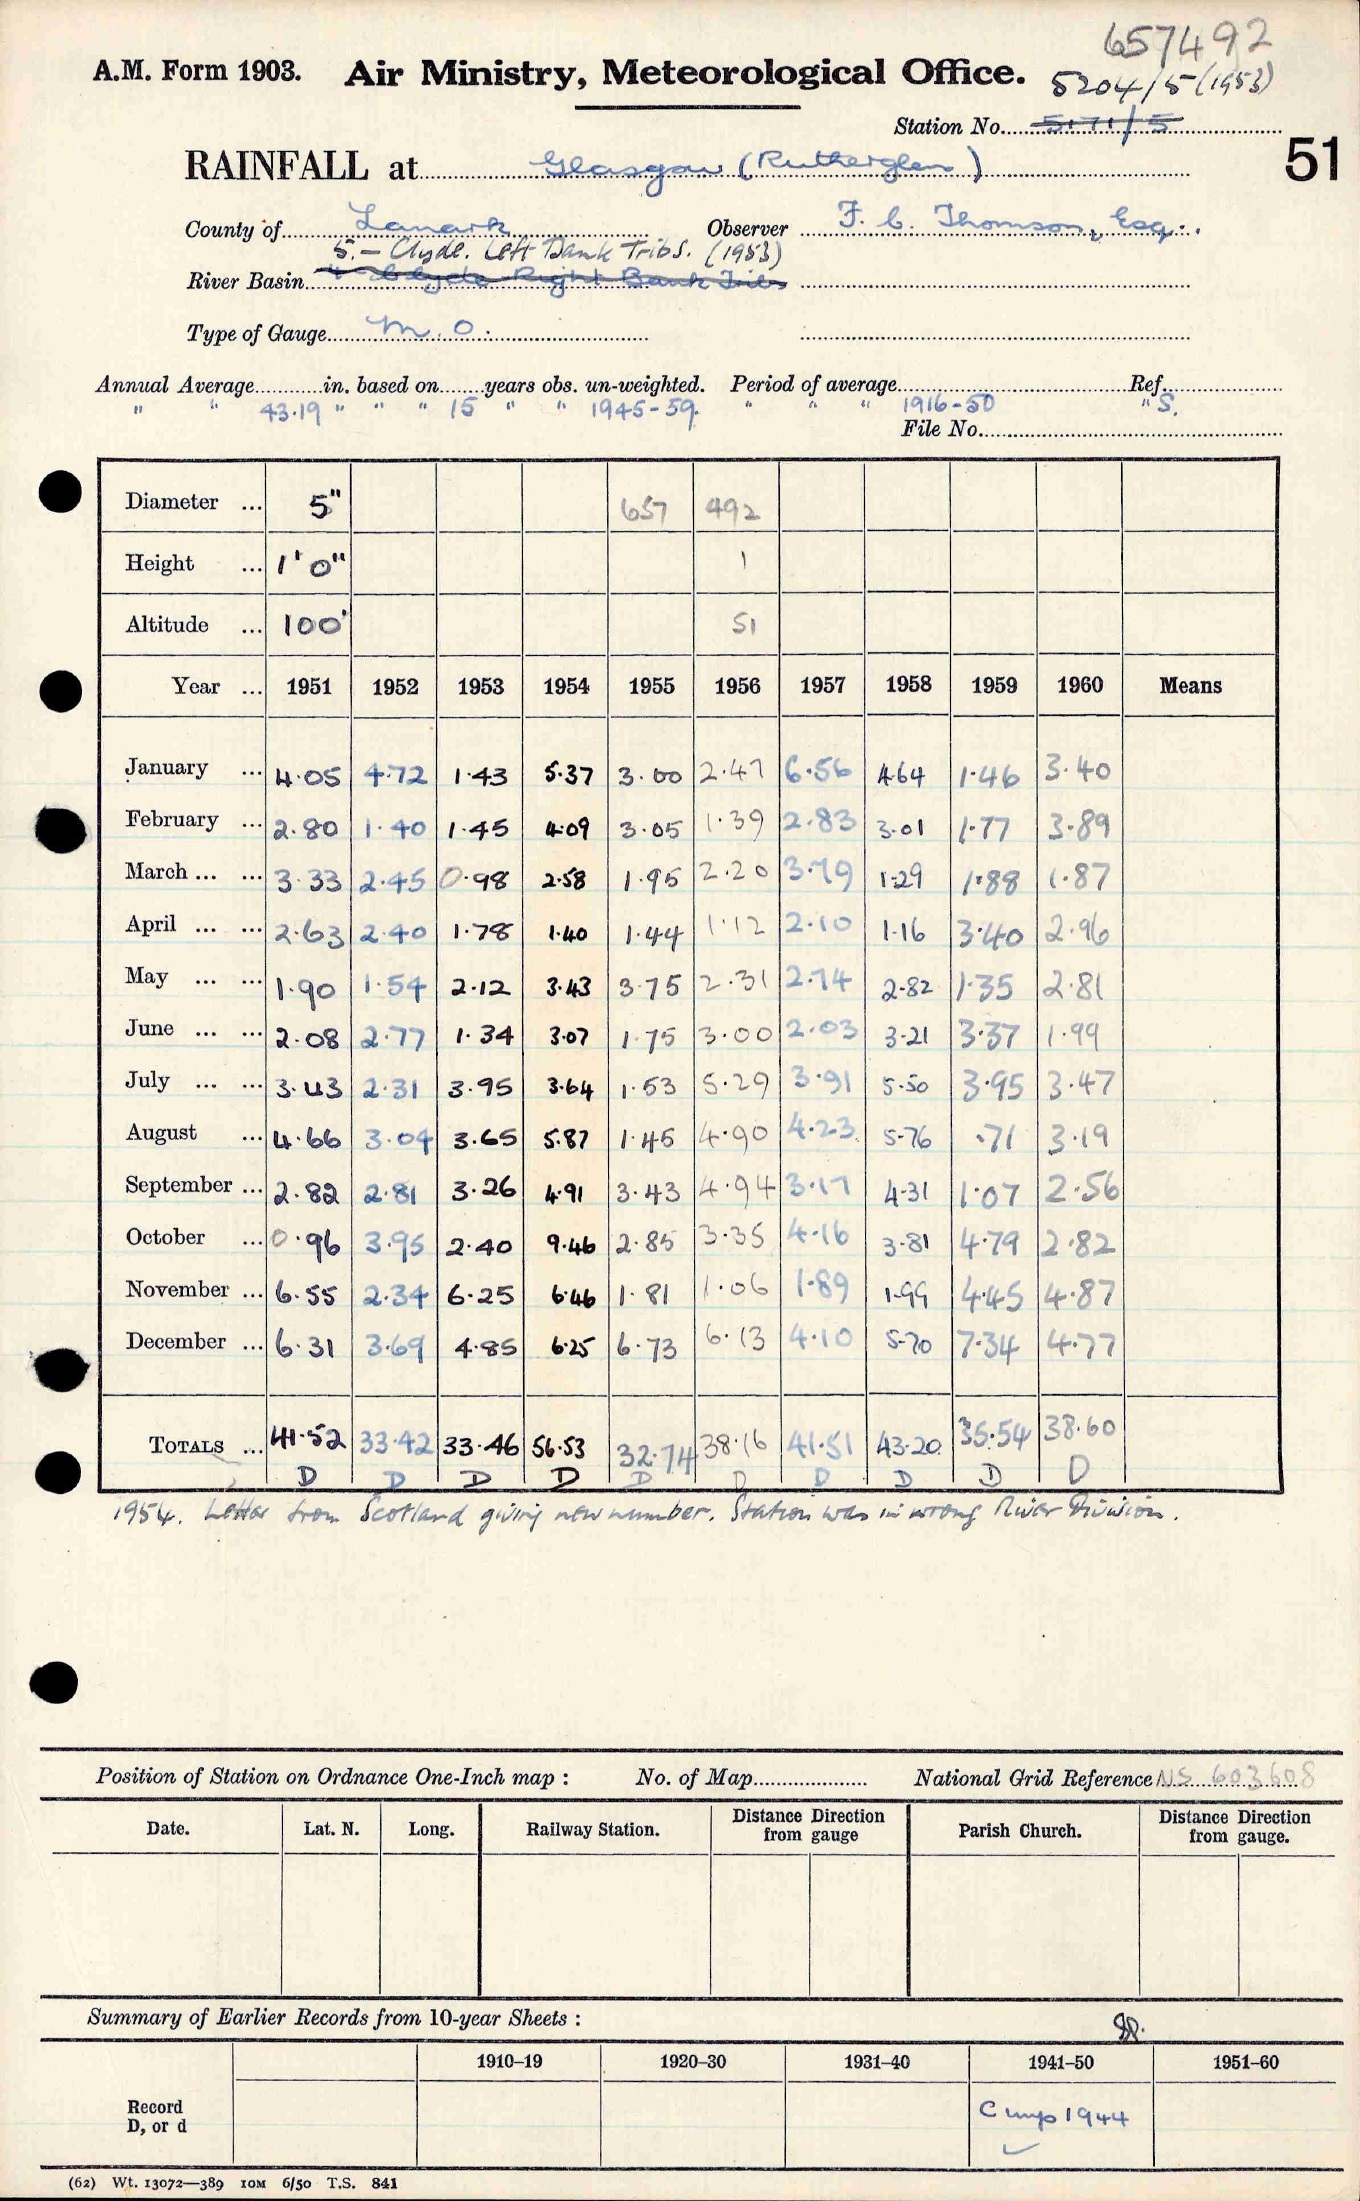 657492
A.M. Form 1903. Air Ministry, Meteorological Office. 5204/5 (1953)
Station No. 5171/5
51
RAINFALL at Glasgow (Rutherglen)
County of Lanark Observer F. C. Thomson, Esq.
5.— Clyde. Left Bank Tribs. (1953)
River Basin Clyde Right Bank Tribs
Type of Gauge M.O.
Annual Average in. based on years obs. un-weighted. Period of average Ref.
" " 43.19 " " " 15 " " 1945-59. " " " 1916-50 " S.
File No.
Diameter ... 5" 657 492
Height ... 1' 0" 1
Altitude ... 100' 51
Year ... 1951 1952 1953 1954 1955 1956 1957 1958 1959 1960 Means
January ... 4.05 4.72 1.43 5.37 3.00 2.47 6.56 4.64 1.46 3.40
February ... 2.80 1.40 1.45 4.09 3.05 1.39 2.83 3.01 1.77 3.89
March ... ... 3.33 2.45 0.98 2.58 1.95 2.20 3.79 1.29 1.88 1.87
April ... ... 2.63 2.40 1.78 1.40 1.44 1.12 2.10 1.16 3.40 2.96
May ... ... 1.90 1.54 2.12 3.43 3.75 2.31 2.74 2.82 1.35 2.81
June ... ... 2.08 2.77 1.34 3.07 1.75 3.00 2.03 3.21 3.37 1.99
July ... ... 3.43 2.31 3.95 3.64 1.53 5.29 3.91 5.50 3.95 3.47
August ... 4.66 3.04 3.65 5.87 1.45 4.90 4.23 5.76 .71 3.19
September ... 2.82 2.81 3.26 4.91 3.43 4.94 3.17 4.31 1.07 2.56
October ... 0.96 3.95 2.40 9.46 2.85 3.35 4.16 3.81 4.79 2.82
November ... 6.55 2.34 6.25 6.46 1.81 1.06 1.89 1.99 4.45 4.87
December ... 6.31 3.69 4.85 6.25 6.73 6.13 4.10 5.70 7.34 4.77
TOTALS ... 41.52 33.42 33.46 56.53 32.74 38.16 41.51 43.20 35.54 38.60
D D D D D D D D D D
1954. Letter from Scotland giving new number. Station was in wrong River Division.
Position of Station on Ordnance One-Inch map : No. of Map National Grid Reference NS 603608
Date. Lat. N. Long. Railway Station. Distance Direction from gauge Parish Church. Distance Direction from gauge.
Summary of Earlier Records from 10-year Sheets :
1910–19 1920–30 1931–40 1941–50 1951–60
Record D, or d 1944
(62) Wt. 13072—389 10M 6/50 T.S. 841